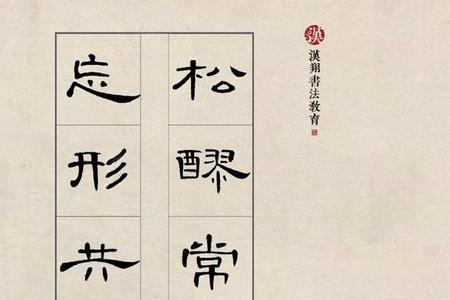 漢
漢翔書法教育
松醪常
忘形共